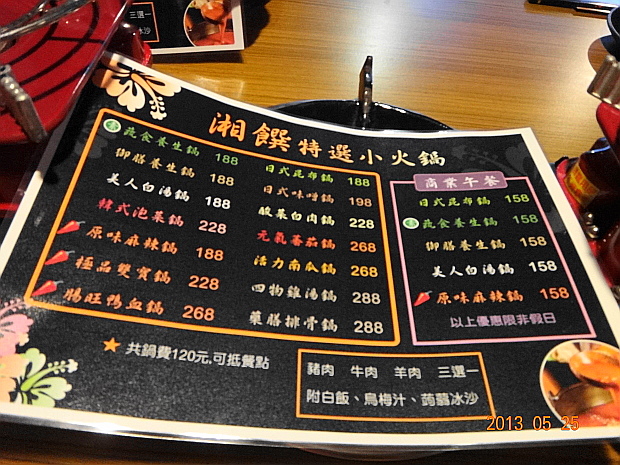 三選一
冰沙
湘饌特選小火鍋
蔬食養生鍋 188
御膳養生鍋 188
美人白湯鍋 188
韓式泡菜鍋 228
原味麻辣鍋 188
極品雙寶鍋 228
腸旺鴨血鍋 268
日式昆布鍋 188
日式味噌鍋 198
酸菜白肉鍋 228
元氣蕃茄鍋 268
活力南瓜鍋 268
四物雞湯鍋 288
藥膳排骨鍋 288
商業午餐
日式昆布鍋 158
蔬食養生鍋 158
御膳養生鍋 158
美人白湯鍋 158
原味麻辣鍋 158
以上優惠限非假日
★ 共鍋費120元,可抵餐點
豬肉 牛肉 羊肉 三選一
附白飯、烏梅汁、蒟蒻冰沙
2013 05 25